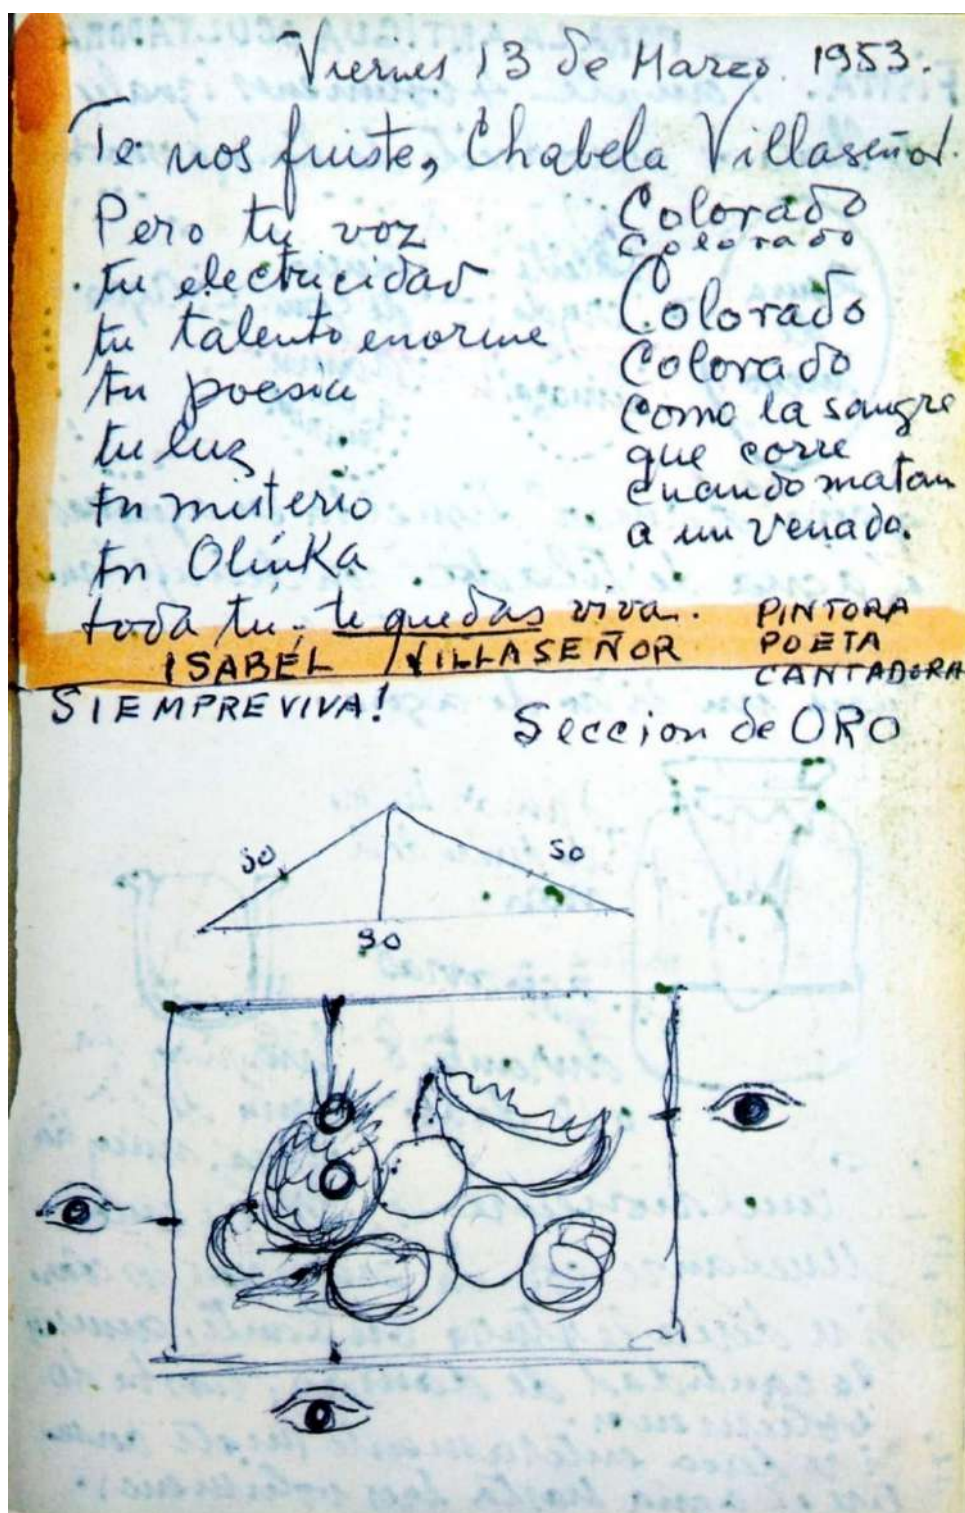 Viernes 13 de Marzo. 1953.
Te nos fuiste, Chabela Villaseñor.
Pero tu voz
tu electricidad
tu talento enorme
tu poesia
tu luz
tu misterio
tu Olinka
toda tu, te quedas viva.
Colorado
Colorado
Colorado
Colorado
como la sangre
que corre
cuando matan
a un venado.
ISABEL VILLASEÑOR
PINTORA
POETA
CANTADORA
SIEMPRE VIVA!
Seccion de ORO
90